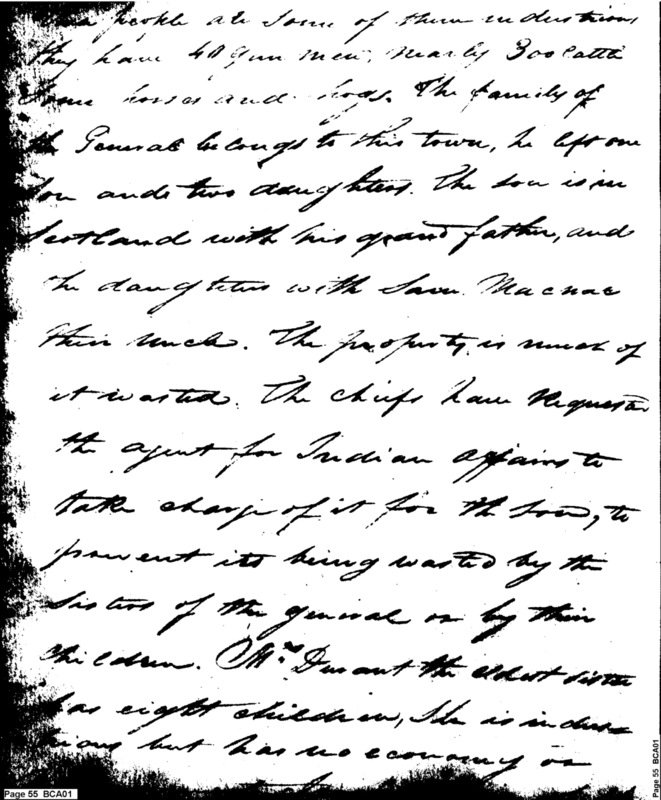 people are some of them industrious
they have 40 gun men, nearly 300 cattle
some horses and hogs. The family of
the General belongs to this town, he left one
son and two daughters. The son is in
Scotland with his grand father, and
the daughters with Sam. Macnac
their uncle. The property is much of
it wasted. The chiefs have requested
the agent for Indian affairs to
take charge of it for the son, to
prevent its being wasted by the
sisters of the general or by their
children. Mrs Durant the eldest sister
has eight children, She is indus
trious but has no economy or
Page 55 BCA01
Page 55 BCA01